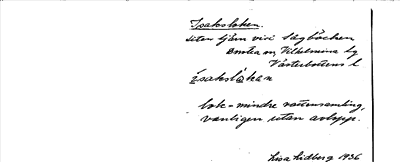 Isaksloken.
liten tjärn vid Sågbäcken
Dorotea sn, Vilhelmina tg
Västerbottens l
ísakslǫ̀kɛn
lok = mindre vattensamling,
vanligen utan avlopp.
Lisa Lidberg 1936